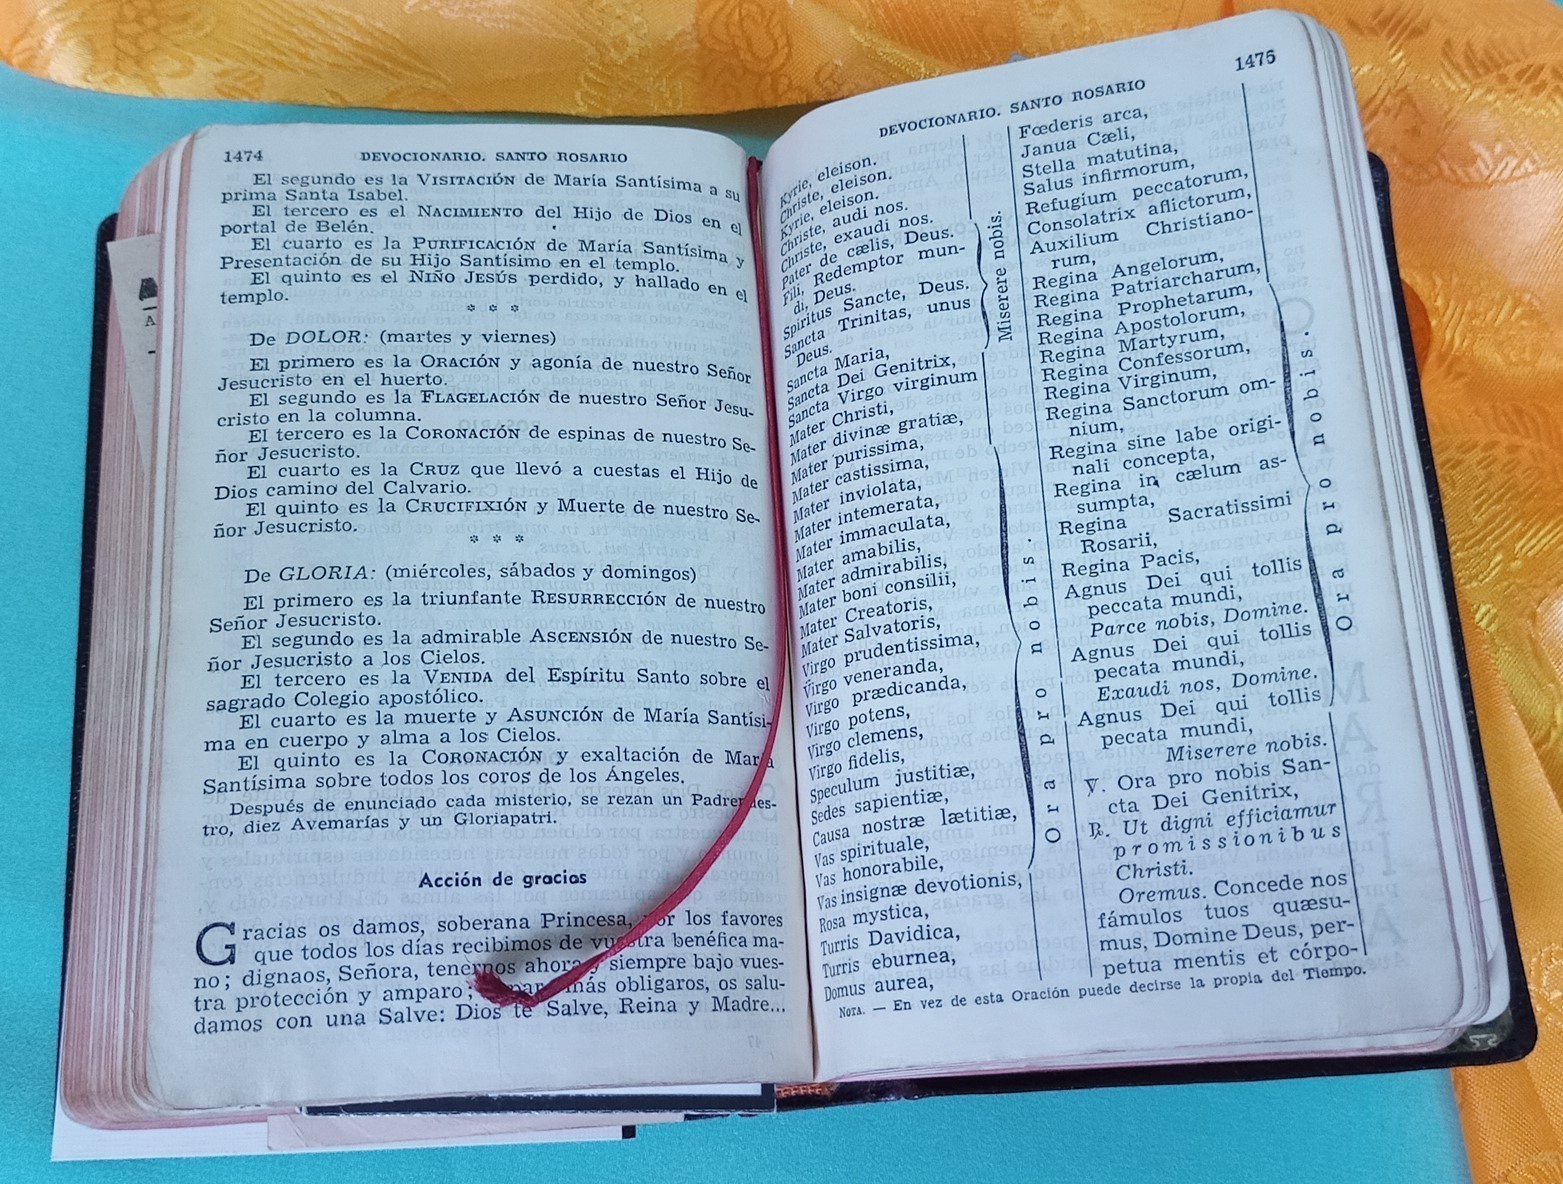 1474
DEVOCIONARIO. SANTO ROSARIO
El segundo es la VISITACIÓN de María Santísima a su
prima Santa Isabel.
El tercero es el NACIMIENTO del Hijo de Dios en el
portal de Belén.
El cuarto es la PURIFICACIÓN de María Santísima y
Presentación de su Hijo Santísimo en el templo.
El quinto es el NIÑO JESÚS perdido, y hallado en el
templo.
* * *
De DOLOR: (martes y viernes)
El primero es la ORACIÓN y agonía de nuestro Señor
Jesucristo en el huerto.
El segundo es la FLAGELACIÓN de nuestro Señor Jesu-
cristo en la columna.
El tercero es la CORONACIÓN de espinas de nuestro Se-
ñor Jesucristo.
El cuarto es la CRUZ que llevó a cuestas el Hijo de
Dios camino del Calvario.
El quinto es la CRUCIFIXIÓN y Muerte de nuestro Se-
ñor Jesucristo.
* * *
De GLORIA: (miércoles, sábados y domingos)
El primero es la triunfante RESURRECCIÓN de nuestro
Señor Jesucristo.
El segundo es la admirable ASCENSIÓN de nuestro Se-
ñor Jesucristo a los Cielos.
El tercero es la VENIDA del Espíritu Santo sobre el
sagrado Colegio apostólico.
El cuarto es la muerte y ASUNCIÓN de María Santísi-
ma en cuerpo y alma a los Cielos.
El quinto es la CORONACIÓN y exaltación de María
Santísima sobre todos los coros de los Ángeles.
Después de enunciado cada misterio, se rezan un Padrenues-
tro, diez Avemarías y un Gloriapatri.
Acción de gracias
Gracias os damos, soberana Princesa, por los favores
que todos los días recibimos de vuestra benéfica ma-
no; dignaos, Señora, tenernos ahora y siempre bajo vues-
tra protección y amparo; para más obligaros, os salu-
damos con una Salve: Dios te Salve, Reina y Madre...
1475
DEVOCIONARIO. SANTO ROSARIO
Kyrie, eleison.
Christe, eleison.
Kyrie, eleison.
Christe, audi nos.
Christe, exaudi nos.
Pater de cælis, Deus.
Fili, Redemptor mun-
di, Deus.
Spiritus Sancte, Deus.
Sancta Trinitas, unus
Deus.
Miserere nobis.
Sancta Maria,
Sancta Dei Genitrix,
Sancta Virgo virginum
Mater Christi,
Mater divinæ gratiæ,
Mater purissima,
Mater castissima,
Mater inviolata,
Mater intemerata,
Mater immaculata,
Mater amabilis,
Mater admirabilis,
Mater boni consilii,
Mater Creatoris,
Mater Salvatoris,
Virgo prudentissima,
Virgo veneranda,
Virgo prædicanda,
Virgo potens,
Virgo clemens,
Virgo fidelis,
Speculum justitiæ,
Sedes sapientiæ,
Causa nostræ lætitiæ,
Vas spirituale,
Vas honorabile,
Vas insignæ devotionis,
Rosa mystica,
Turris Davidica,
Turris eburnea,
Domus aurea,
Ora pro nobis.
Fœderis arca,
Janua Cæli,
Stella matutina,
Salus infirmorum,
Refugium peccatorum,
Consolatrix aflictorum,
Auxilium Christiano-
rum,
Regina Angelorum,
Regina Patriarcharum,
Regina Prophetarum,
Regina Apostolorum,
Regina Martyrum,
Regina Confessorum,
Regina Virginum,
Regina Sanctorum om-
nium,
Regina sine labe origi-
nali concepta,
Regina in cælum as-
sumpta,
Regina Sacratissimi
Rosarii,
Regina Pacis,
Ora pro nobis.
Agnus Dei qui tollis
peccata mundi,
Parce nobis, Domine.
Agnus Dei qui tollis
pecata mundi,
Exaudi nos, Domine.
Agnus Dei qui tollis
pecata mundi,
Miserere nobis.
℣. Ora pro nobis San-
cta Dei Genitrix,
℟. Ut digni efficiamur
promissionibus
Christi.
Oremus. Concede nos
fámulos tuos quæsu-
mus, Domine Deus, per-
petua mentis et córpo-
NOTA. — En vez de esta Oración puede decirse la propia del Tiempo.